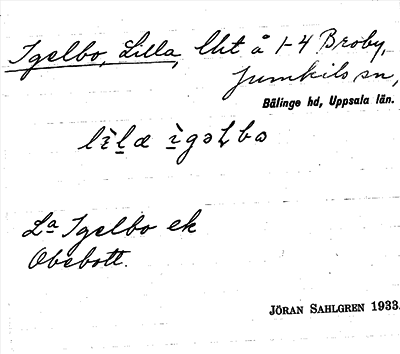 Igelbo, Lilla, lht å 1-4 Broby,
Jumkils sn,
Bälinge hd, Uppsala län.
Lª Igelbo ek
Obebott.
JÖRAN SAHLGREN 1933.